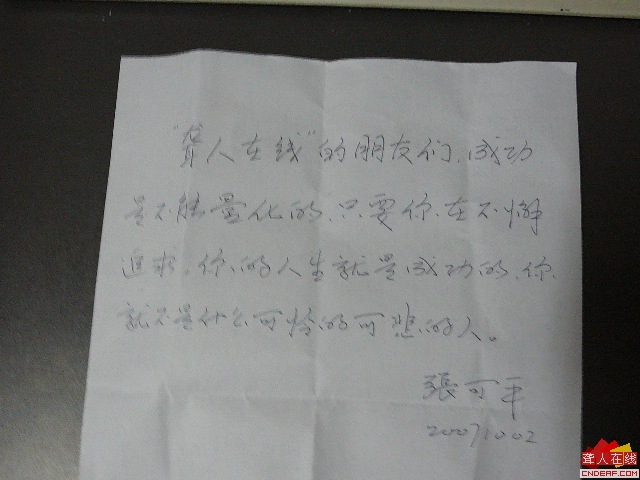 "聋人在线"的朋友们,成功
是不能量化的,只要你在不懈
追求,你的人生就是成功的,你
就不是什么可怜的可悲的人。
張可平
20071002
聋人在线
CNDEAF.COM